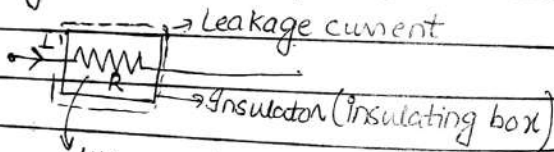 Leakage current
I
R
Insulator (insulating box)